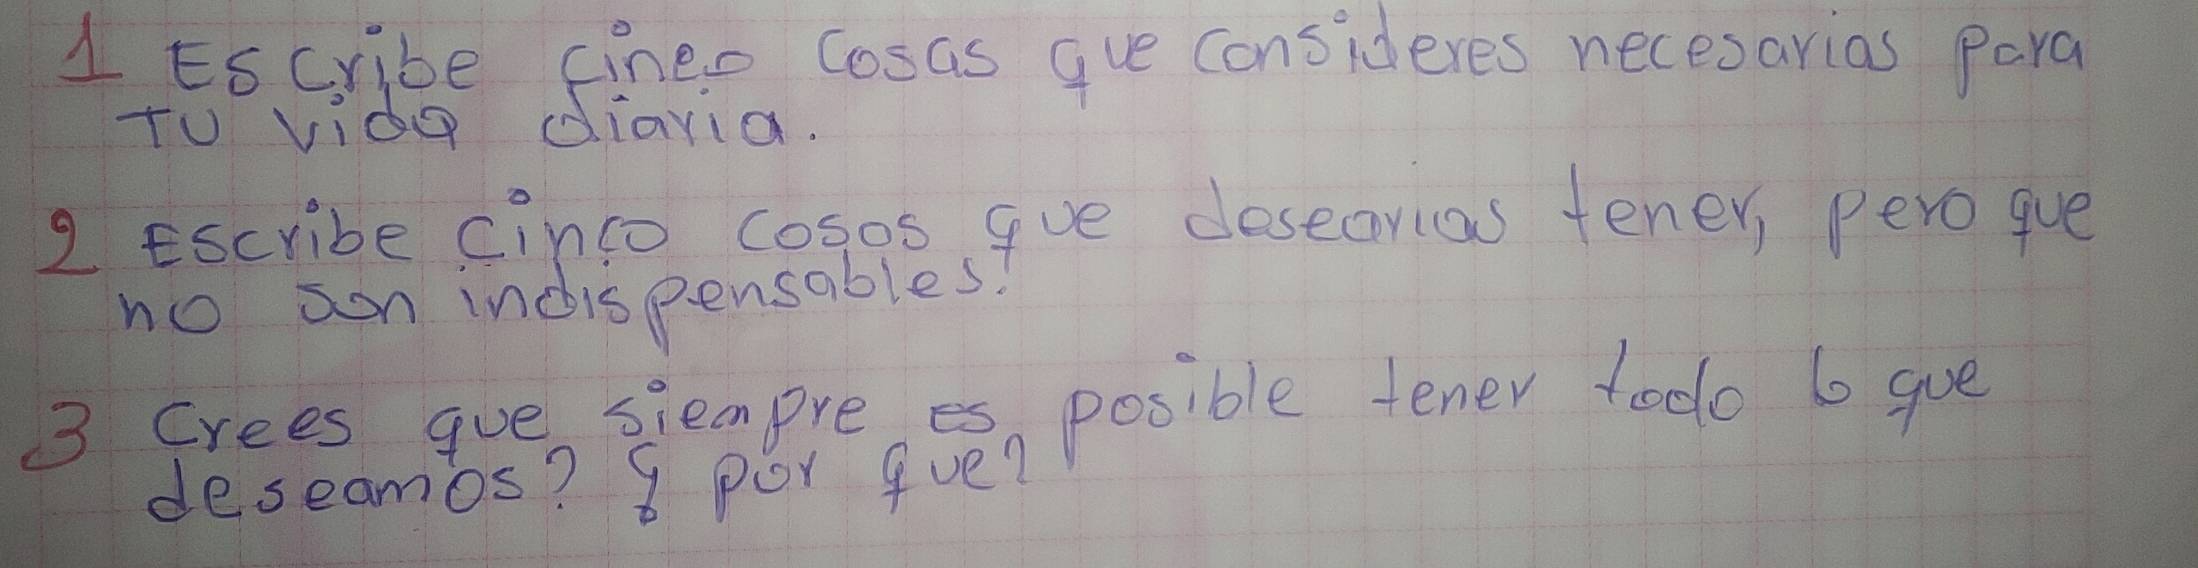 1 Escribe cinco cosas que consideres necesarias para
tu vida diaria.
2 Escribe cinco cosas que desearias tener, pero que
no son indispensables.
3 Crees que siempre es posible tener todo lo que
deseamos? ¿ por que?